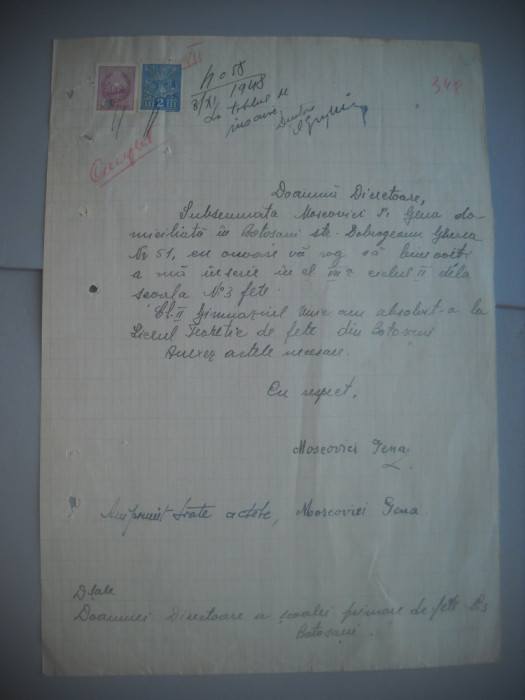 VII
No 58
8/XI 1948
La tabloul de
înscrieri
348
Doamnă Directoare,
Subsemnata Moscovici P. Gena do-
miciliată în Botoșani str. Dobrogeanu Gherea
Nr 51, cu onoare vă rog să binevoiți
a mă înscrie în cl. VII-a ciclul II dela
școala No 3 fete.
Cl. II Gimnaziul Unic am absolvit-o la
Liceul Teoretic de fete din Botoșani
Anexez actele necesare.
Cu respect,
Moscovici Gena
Am primit toate actele, Moscovici Gena.
D-sale
Doamnei Directoare a școalei primare de fete No 3
Botoșani.